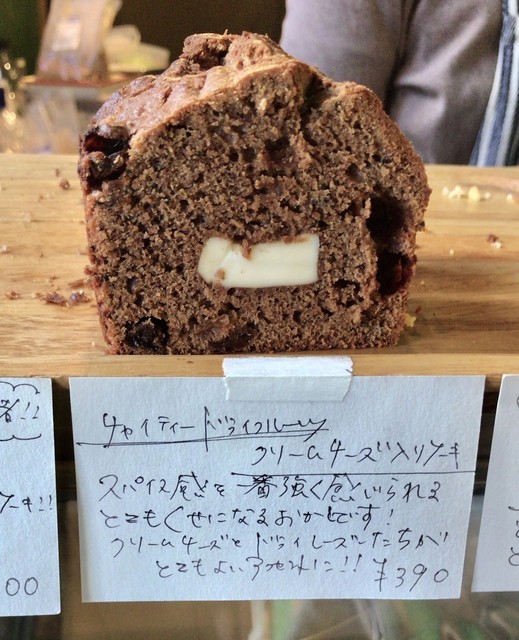 者!!
ケーキ!!
00
チャイティードライフルーツ
クリームチーズ入りケーキ
スパイス感を一番強く感じられる
とてもくせになるおかしです!
クリームチーズとドライレーズンたちが
とてもよい
¥390